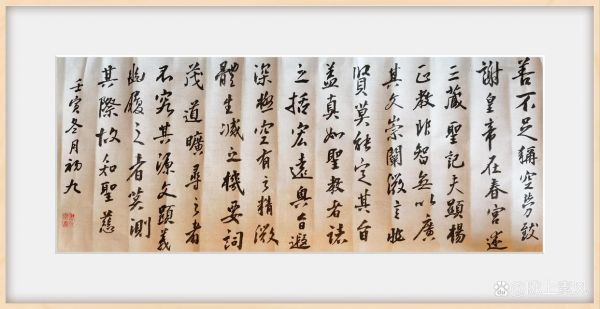 善不足稱空勞致
謝皇帝在春宮述
三藏聖記夫顯楊
正教非智無以廣
其文崇闡微言非
賢莫能定其旨
蓋真如聖教者諸
之括宏遠奧旨遐
深極空有之精微
體生滅之機要詞
茂道曠尋之者
不究其源文顯義
幽履之者莫測
其際故知聖慈
壬寅冬月初九